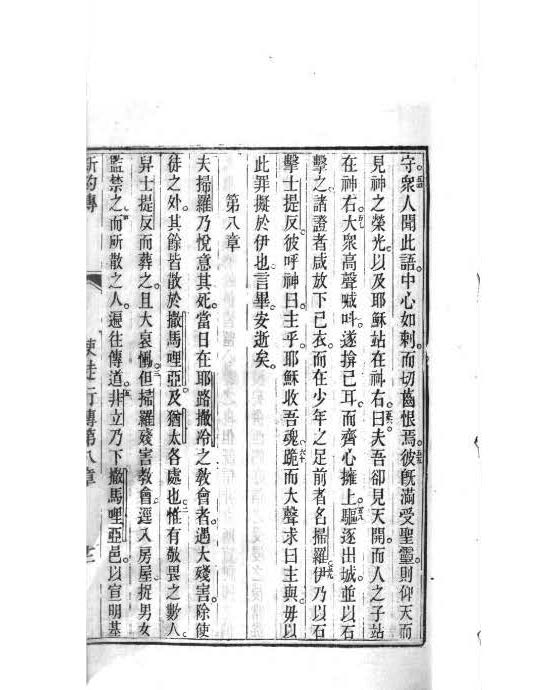 守衆人聞此語。中心如刺。而切齒恨焉。彼旣滿受聖靈。則仰天而
見神之榮光。以及耶穌站在神右。曰夫吾卻見天開。而人之子站
在神右。大衆高聲喊呌。遂揜已耳。而齊心擁上。驅逐出城。並以石
擊之。諸證者咸放下已衣。而在少年之足前者名掃羅。伊乃以石
擊士提反。彼呼神曰。主乎。耶穌收吾魂。跪而大聲求曰。主與毋以
此罪擬於伊也。言畢。安逝矣。
第八章
夫掃羅乃悅意其死。當日在耶路撒冷之敎會者。遇大殘害。除使
徒之外。其餘皆散於撒馬哩亞。及猶太各處也。惟有敬畏之數人。
舁士提反而葬之。且大哀慟。但掃羅殘害敎會。逕入房屋。捉男女
監禁之。而所散之人。遍往傳道。非立乃下撒馬哩亞邑。以宣明基
新約傳 使徒行傳第八章